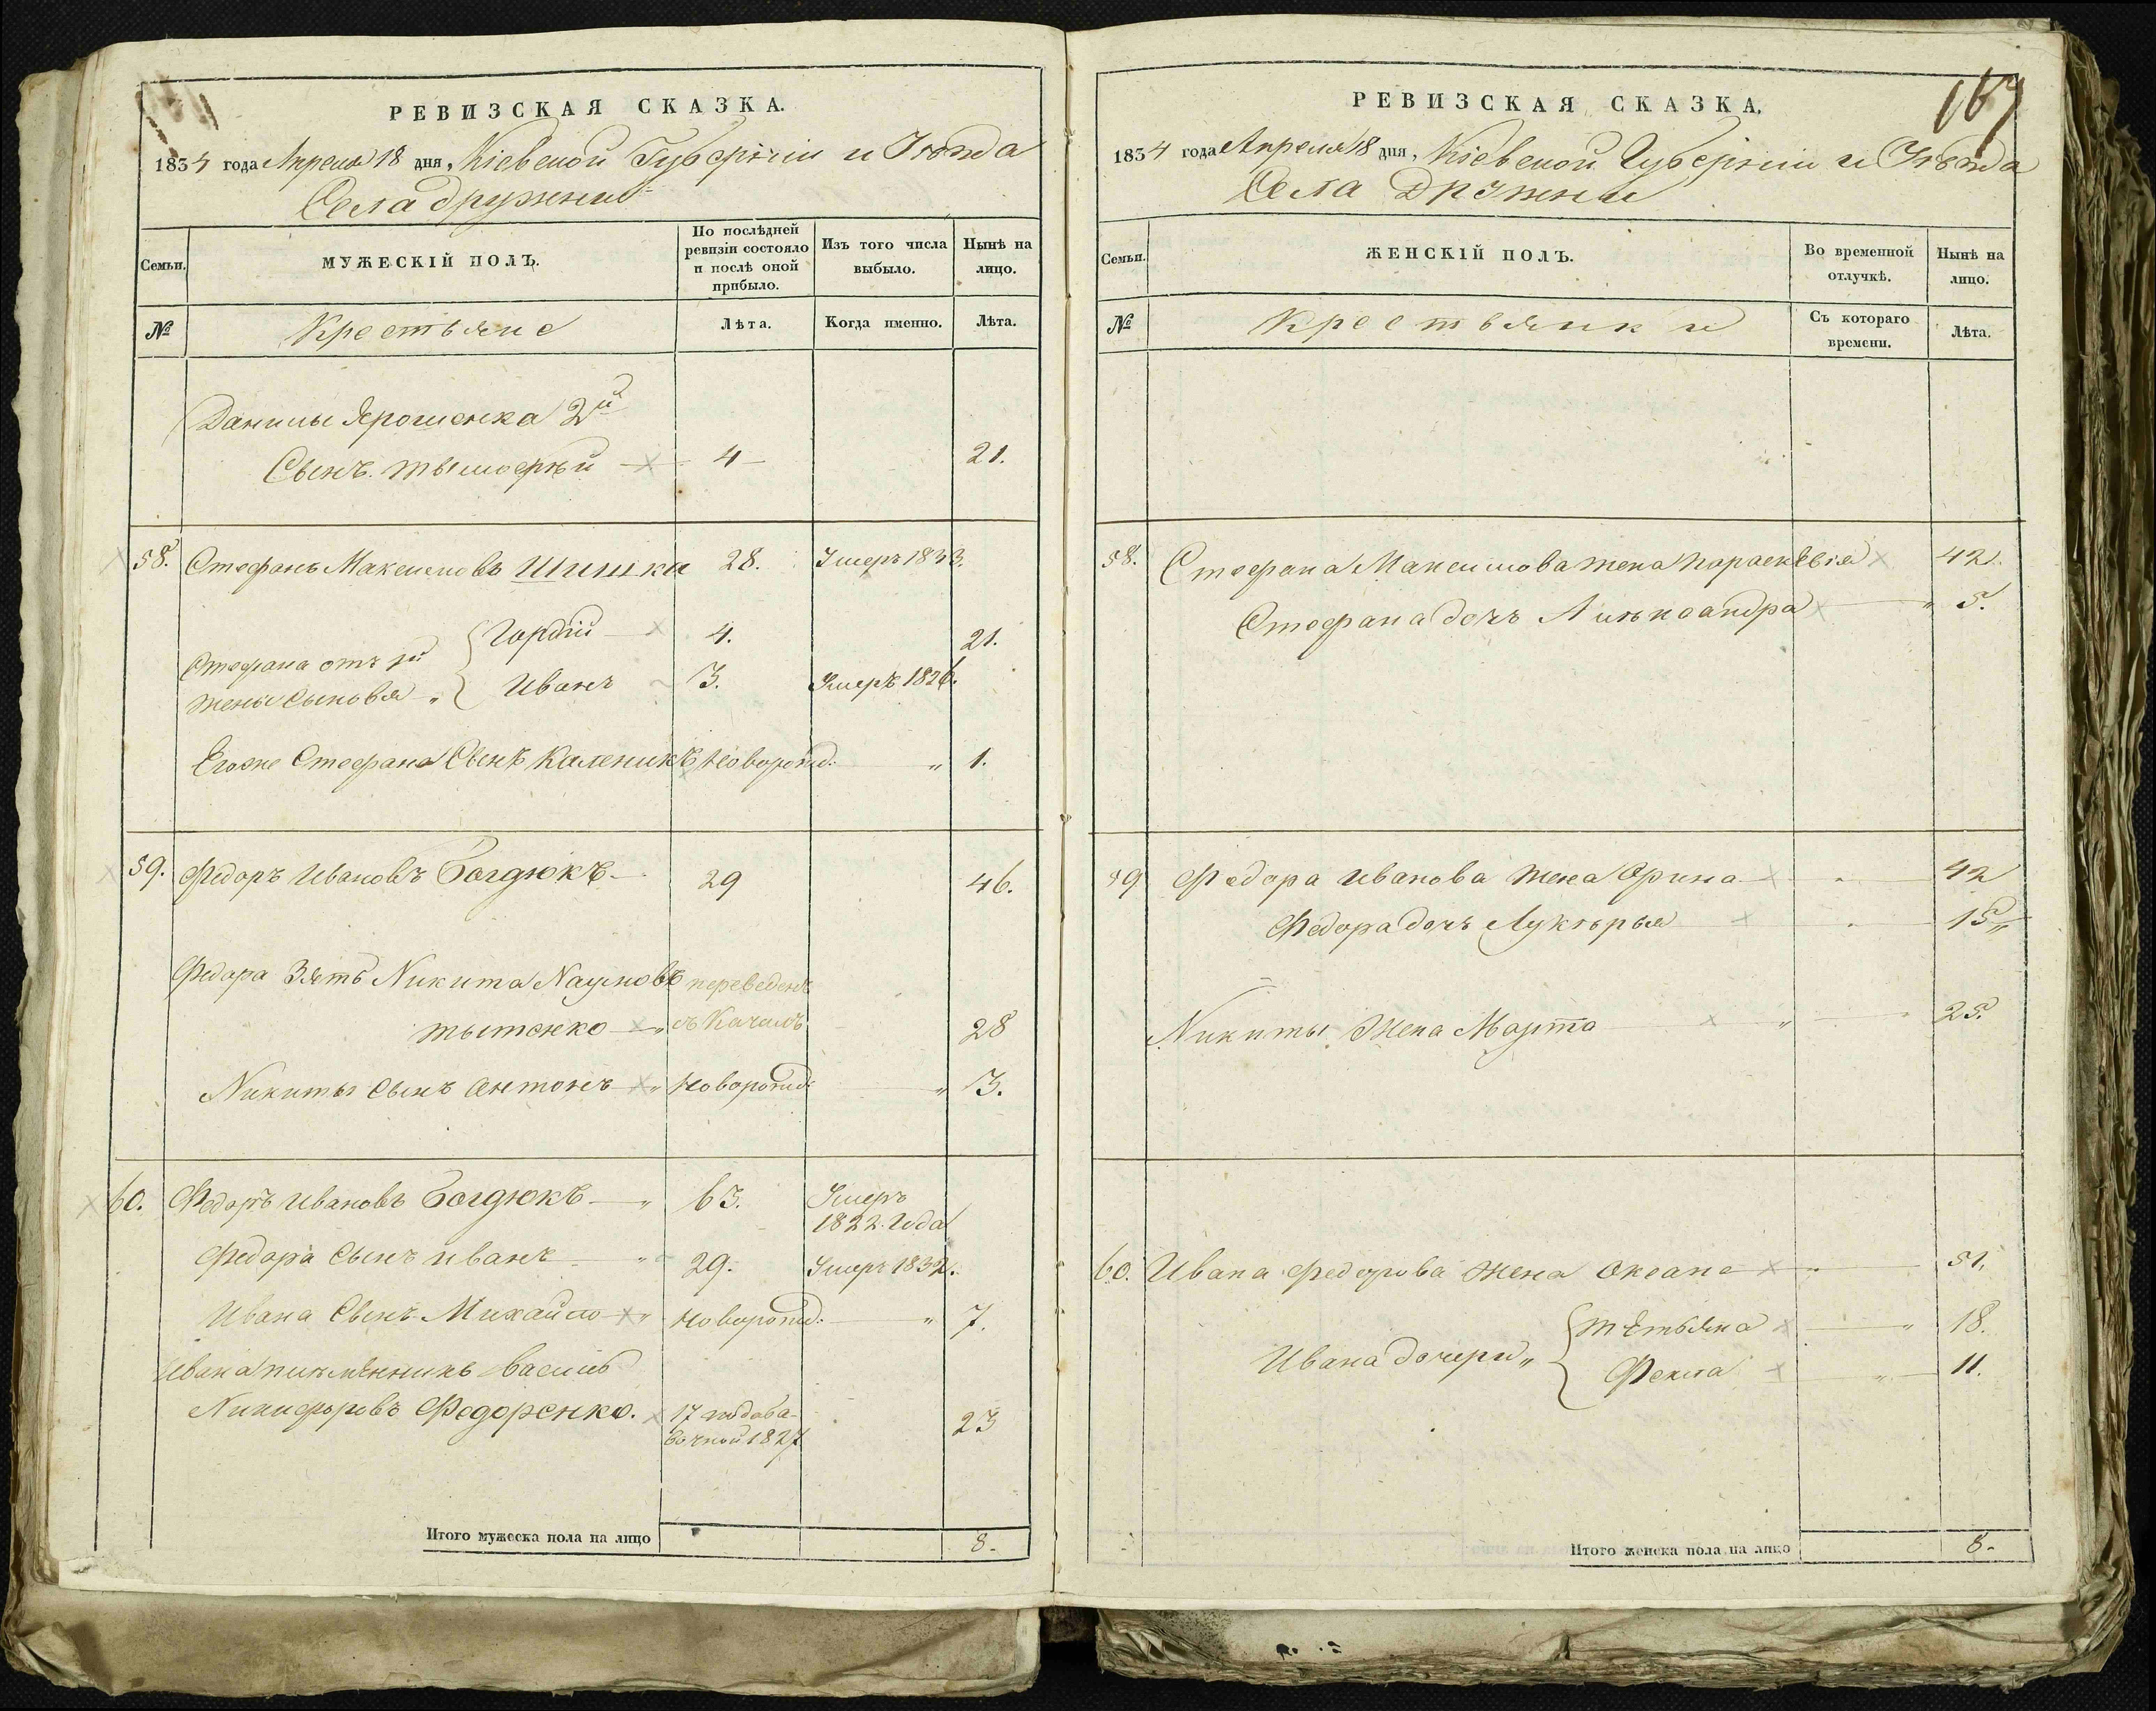 РЕВИЗСКАЯ СКАЗКА.
1834 года Апреля 18 дня, Кіевской Губерніи и Уѣзда
Села Дружни
Семьи.
МУЖЕСКІЙ ПОЛЪ.
По послѣдней
ревизіи состояло
и послѣ оной
прибыло.
Изъ того числа
выбыло.
Нынѣ на
лицо.
№
Крестьяне
Лѣта.
Когда именно.
Лѣта.
Данилы Ярошенка 2й
Сынъ Тымофѣй 4 21.
58. Стефанъ Максимовъ Шишка 28. Умеръ 1833.
Гордій 4. 21.
Стефана отъ
жены сыновья Иванъ 3. Умеръ 1826.
Егоже Стефана Сынъ Каленикъ Новорожд: 1.
59. Федоръ Ивановъ Богдюкъ 29 46.
Федора Зять Никита Наумовъ переведенъ
Тытенко съ 28
Никиты Сынъ Антонъ Новорожд: 3.
60. Федоръ Ивановъ Богдюкъ 63. Умеръ
1822. Года
Федора Сынъ Иванъ 29. Умеръ 1832.
Ивана Сынъ Михайло Новорожд: 7.
Ивана племѣнникъ Василь
Никифоровъ Федоренко. 17 по доба-
вочной 1827 23
Итого мужеска пола на лицо 8.
167
РЕВИЗСКАЯ СКАЗКА.
1834 года Апреля 18 дня, Кіевской Губерніи и Уѣзда
Села Дружни
Семьи.
ЖЕНСКІЙ ПОЛЪ.
Во временной
отлучкѣ.
Нынѣ на
лицо.
№
Крестьянки
Съ котораго
времени.
Лѣта.
58. Стефана Максимова жена Параскѣвія 42.
Стефана дочь 5.
59 Федора Иванова жена Орина 42
Федора дочь Лукѣрья 15
Никиты Жена Марта 25.
60. Ивана Федорова жена Оксана 51.
Тѣтьяна 18.
Ивана дочери
Фекла 11.
Итого женска пола на лицо 8.